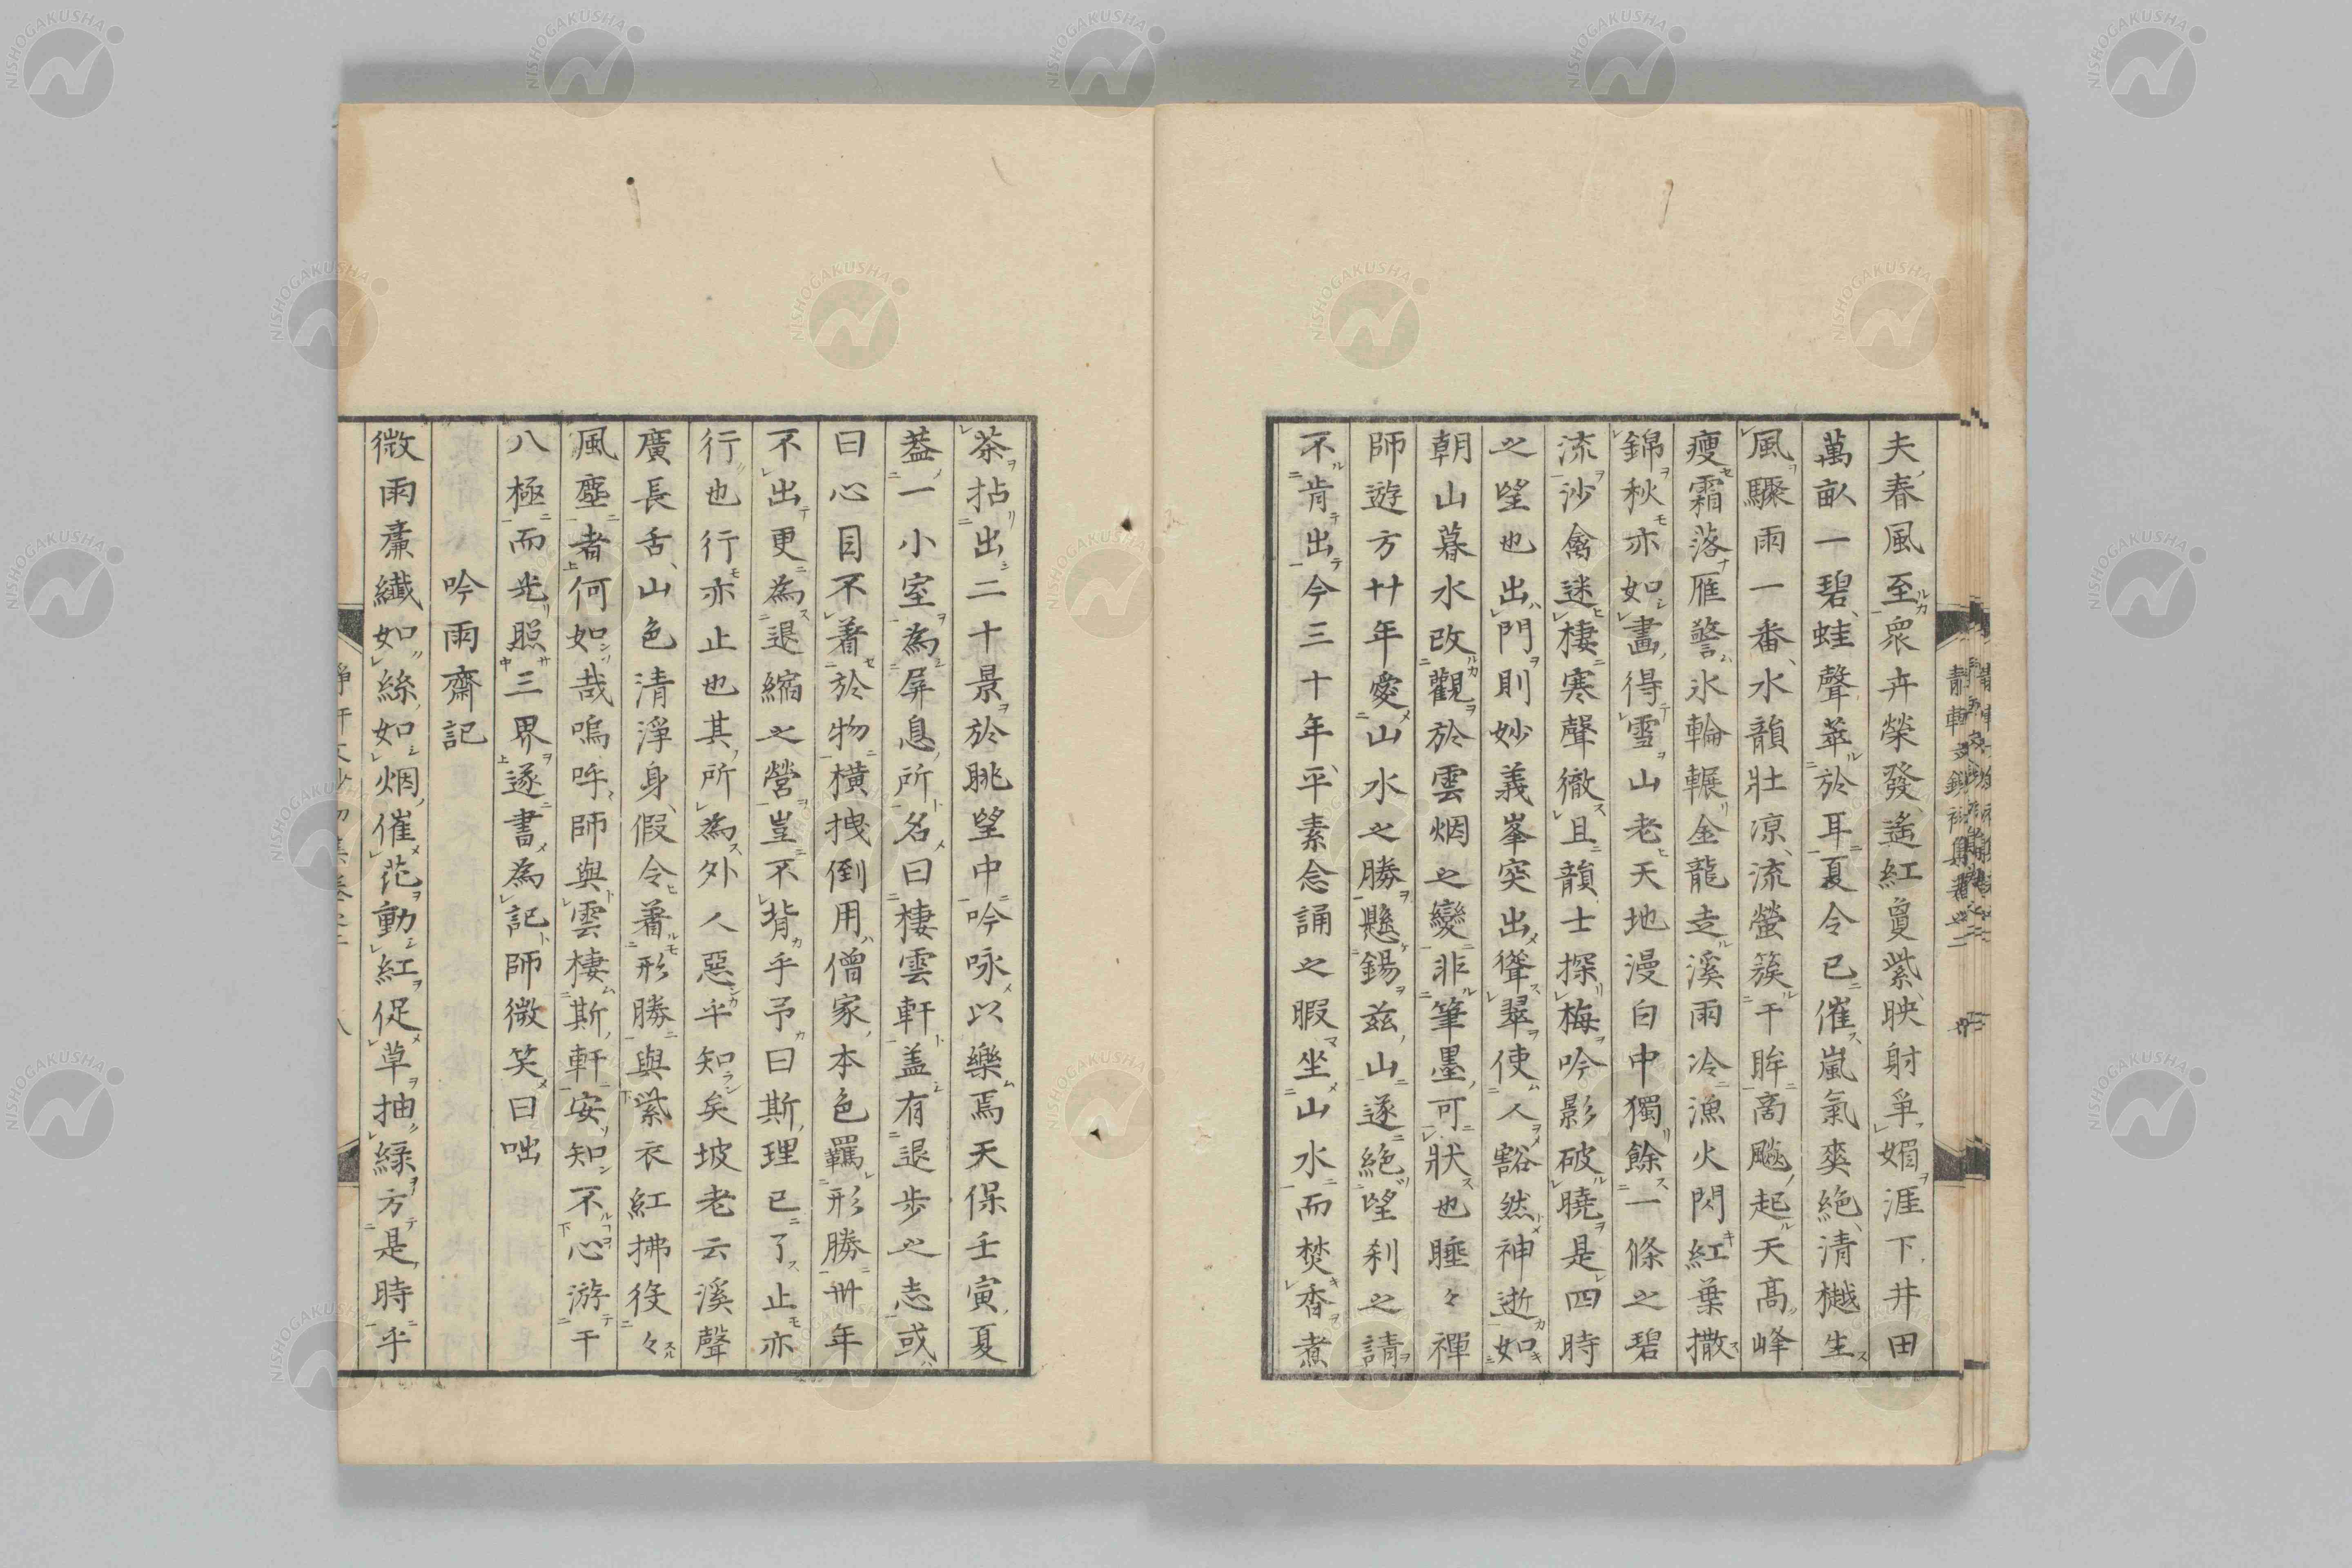 夫春風至衆卉榮發遙紅敻紫映射爭媚涯下井田
萬畝一碧蛙聲萃於耳夏令已催嵐氣爽絶清樾生
風驟雨一番水韻壯凉流螢簇于眸商飈起天高峰
瘦霜落雁警氷輪輾金龍走溪雨冷漁火閃紅葉撒
錦秋亦如畵得雪山老天地漫白中獨餘一條之碧
流沙禽迷棲寒聲徹且韻士探梅吟影破曉是四時
之望也出門則妙義峯突出聳翠使人豁然神逝如
朝山暮水改觀於雲烟之變非筆墨可狀也睡々禪
師遊方廿年愛山水之勝懸錫茲山遂絶望刹之請
不肯出今三十年平素念誦之暇坐山水而焚香煮
茶拈出二十景於眺望中吟咏以樂焉天保壬寅夏
葢一小室為屏息所名曰棲雲軒盖有退步之志或
曰心目不着於物橫拽倒用僧家本色羈形勝卅年
不出更為退縮之營豈不背乎予曰斯理已了止亦
行也行亦止也其所為外人惡乎知矣坡老云溪聲
廣長舌山色清淨身假令着形勝與紫衣紅拂役々
風塵者何如哉嗚呼師與雲棲斯軒安知不心游于
八極而光照三界遂書為記師微笑曰咄
吟雨齋記
微雨廉纖如絲如烟催花動紅促草抽緑方是時乎